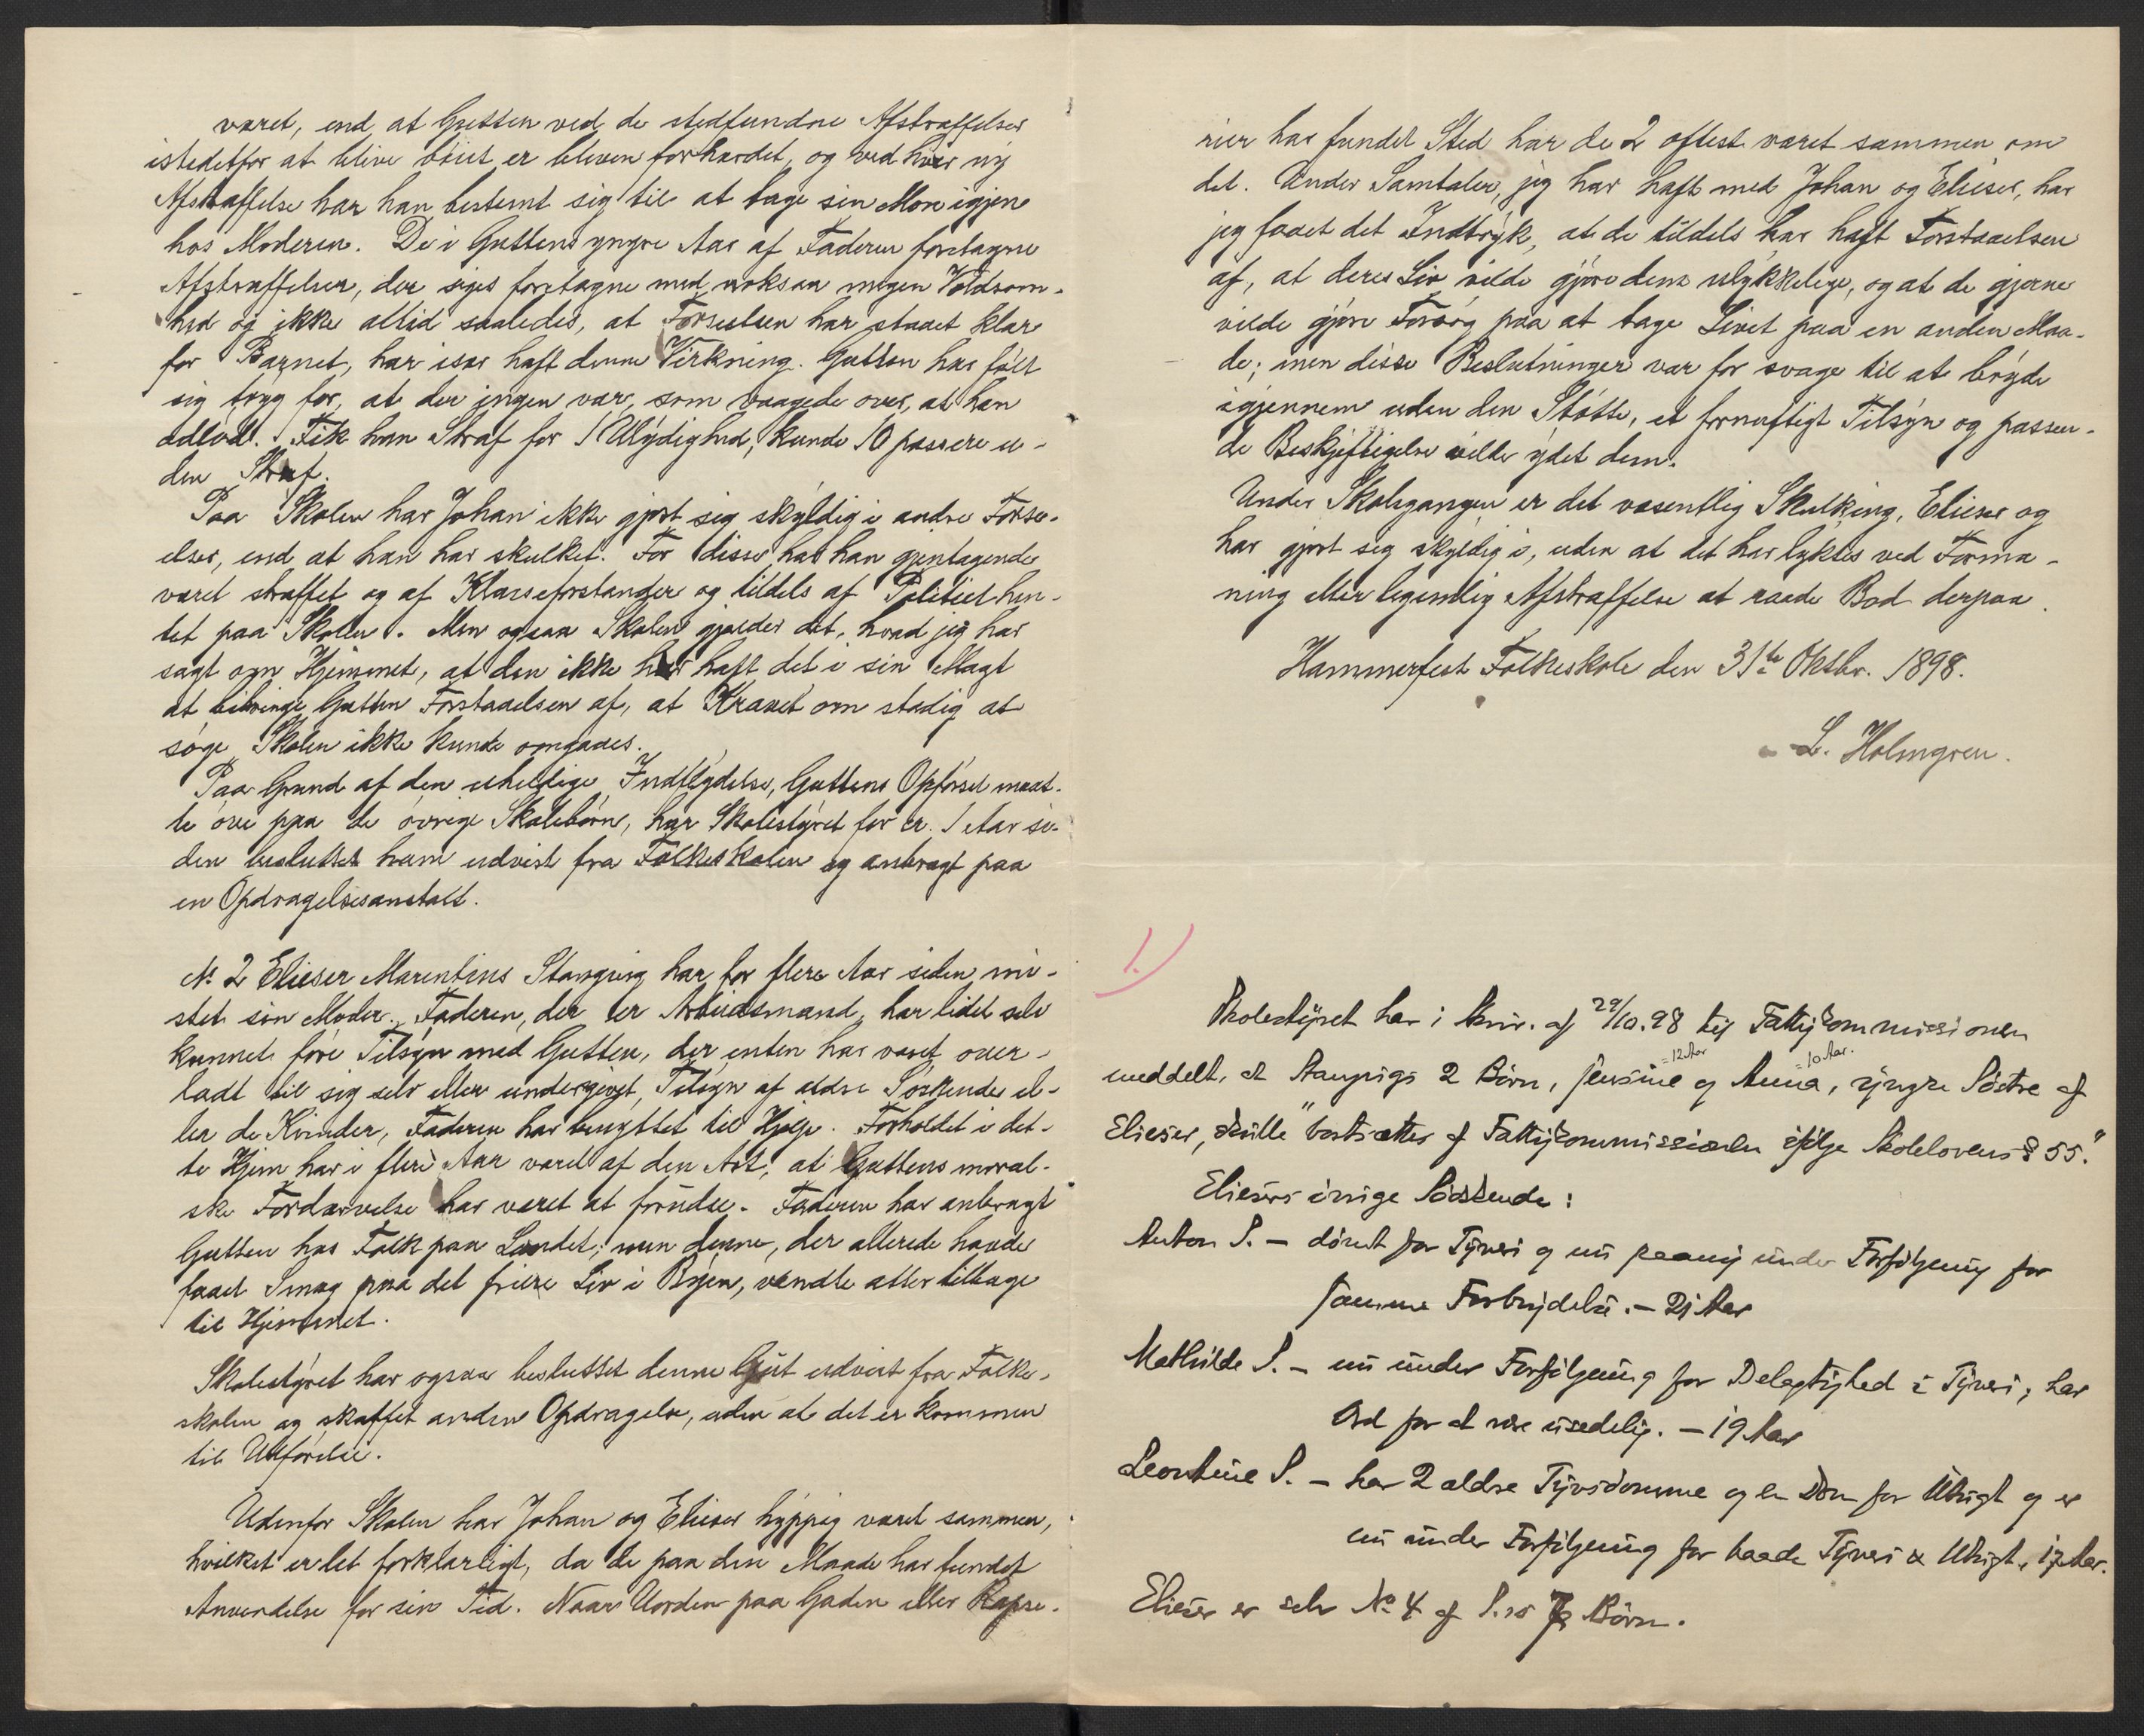 været, end at Gutten ved de stedfundne Afstraffelser
istedetfor at blive bøiet er bleven forhærdet, og ved hver ny
Afstraffelse har han bestemt sig til at tage sin Mon igjen
hos Moderen. De i Guttens yngre Aar af Faderen foretagne
Afstraffelser, der siges foretagne med noksaa megen Voldsom-
hed og ikke altid saaledes, at Forseelsen har staaet klar
for Barnet, har især haft denne Virkning. Gutten har følt
sig tryg for, at der ingen var, som vaagede over, at han
adlød. Fik han Straf for 1 Ulydighed, kunde 10 passere u-
den Straf.
Paa Skolen har Johan ikke gjort sig skyldig i andre Forse-
elser, end at han har skulket. For disse har han gjentagende
været straffet og af Klasseforstander og tildels af Politiet hen-
tet paa Skolen. Men ogsaa Skolen gjælder det, hvad jeg har
sagt om Hjemmet, at den ikke har haft det i sin Magt
at bibringe Gutten Forstaaelsen af, at Kravet om stadig at
søge Skolen ikke kunde omgaaes.
Paa Grund af den uheldige Indflydelse, Guttens Opførsel maat-
te øve paa de øvrige Skolebørn, har Skolestyret for cr. 1 Aar si-
den besluttet ham udvist fra Folkeskolen og anbragt paa
en Opdragelsesanstalt.
No 2 Elieser Marentius Stangvig har for flere Aar siden mi-
stet sin Moder. Faderen, der er Arbeidsmand, har lidet selv
kunnet føre Tilsyn med Gutten, der enten har været over-
ladt til sig selv eller undergivet Tilsyn af ældre Søskende el-
ler de Kvinder, Faderen har benyttet til Hjelp. Forholdet i det-
te Hjem har i flere Aar været af den Art, at Guttens moral-
ske Fordærvelse har været at forudse. Faderen har anbragt
Gutten hos Folk paa Landet; men denne, der allerede havde
faaet Smag paa det friere Liv i Byen, vendte atter tilbage
til Hjemmet.
Skolestyret har ogsaa besluttet denne Gut udvist fra Folke-
skolen og skaffet anden Opdragelse, uden at det er kommen
til Udførelse.
Udenfor Skolen har Johan og Elieser hyppig været sammen,
hvilket er let forklarligt, da de paa den Maade har fundet
Anvendelse for sin Tid. Naar Uorden paa Gaden eller Rapse-
rier har fundet Sted har de 2 oftest været sammen om
det. Under Samtaler, jeg har haft med Johan og Elieser, har
jeg faaet det Indtryk, at de tildels har haft Forstaaelsen
af, at deres Liv vilde gjøre dem ulykkelige, og at de gjerne
vilde gjøre Forsøg paa at tage Livet paa en anden Maa-
de; men disse Beslutninger var for svage til at bryde
igjennem uden den Støtte, et fornuftigt Tilsyn og passen-
de Beskjæftigelse vilde ydet dem.
Under Skolegangen er det væsentlig Skulking, Elieser og
har gjort sig skyldig i, uden at det har lyktes ved Forma-
ning eller legemlig Afstraffelse at raade Bod derpaa.
Hammerfest Folkeskole den 31te Oktbr. 1898.
L. Holmgren.
1.)
Skolestyret har i Skriv. af 29/10.98 til Fattigkommissionen
= 12 Aar 10 Aar.
meddelt, at Stangvigs 2 Børn, Jensine og Anna, yngre Søstre af
Elieser, skulle "bortsættes af Fattigkommissionen ifølge Skolelovens § 55."
Eliesers øvrige Sødskende:
Anton S. – dømt for Tyveri og nu paany under Forfølgning for
samme Forbrydelse. – 21 Aar
Mathilde S. – nu under Forfølgning for Delagtighed i Tyveri, har
Ord for at være usedelig. – 19 Aar
Leontine S. – har 2 ældre Tyvsdomme og en Dom for Utugt og er
nu under Forfølgning for baade Tyveri & Utugt. 17 Aar.
Elieser er selv No 4 af S.s 7 Børn.